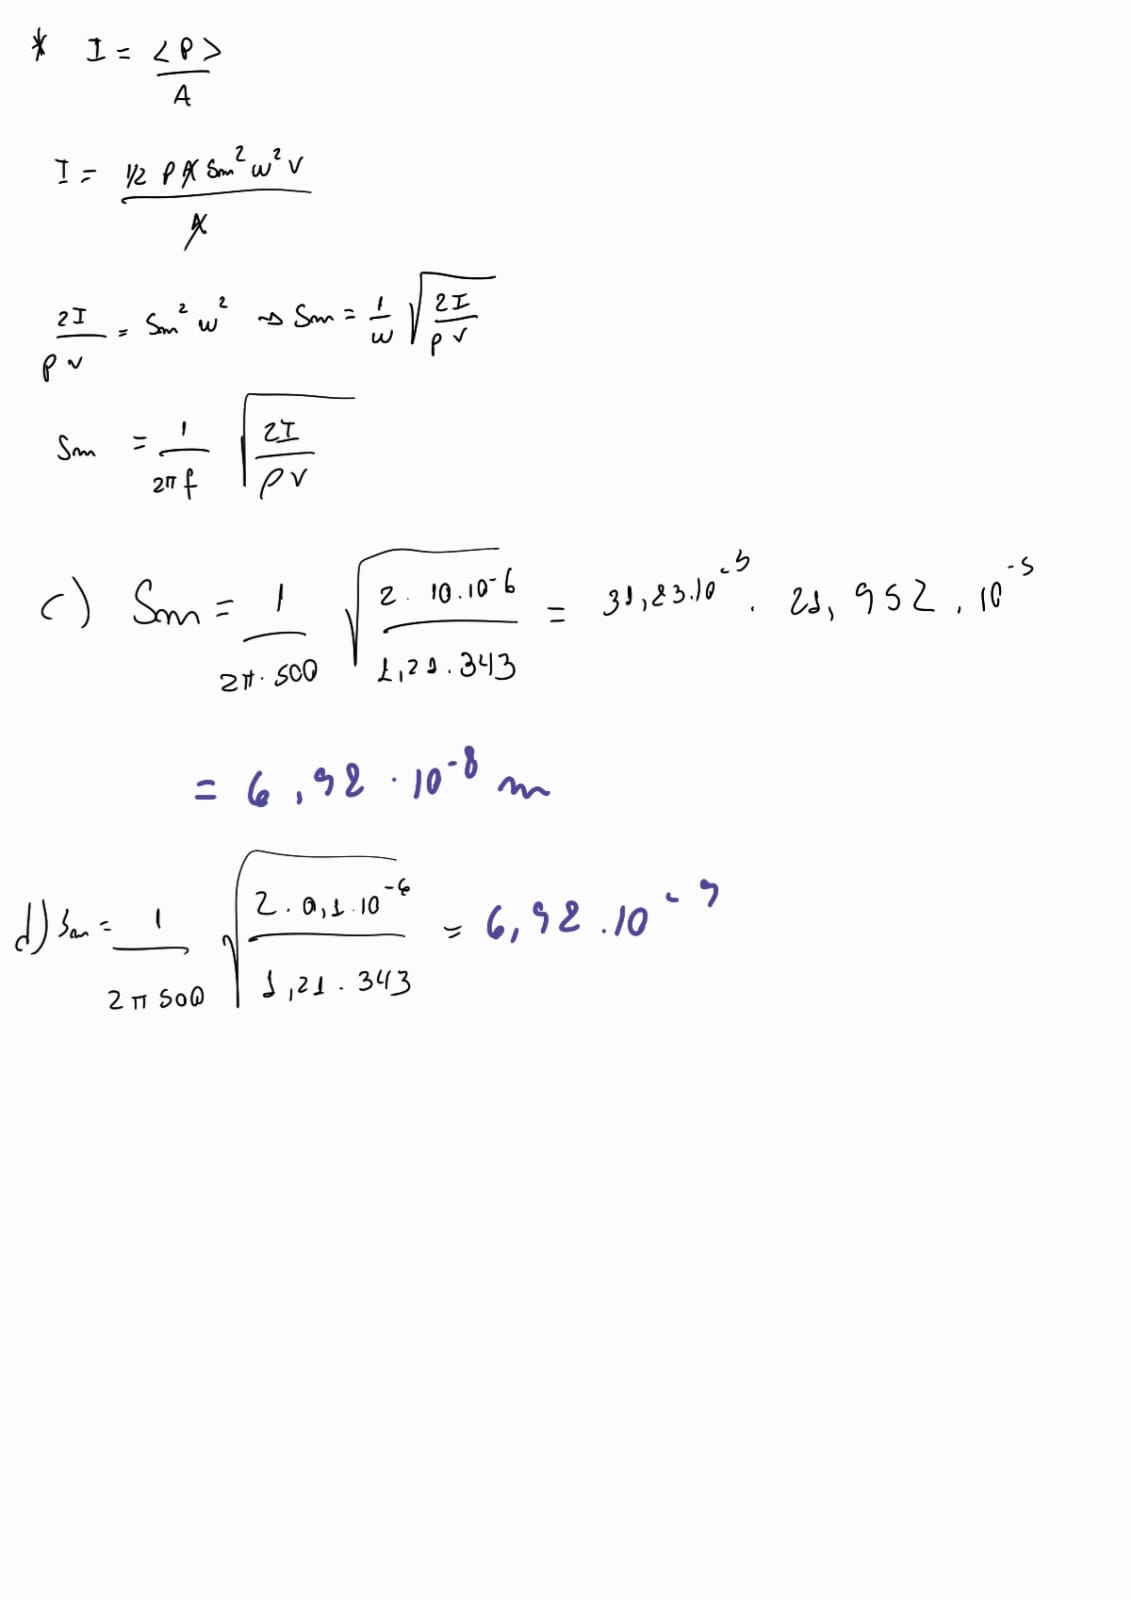 * I = <P> / A
I = 1/2 ρ A Sm² ω² v / A
2I / ρ v = Sm² ω² → Sm = 1/ω √(2I / ρ v)
Sm = 1 / 2π f √(2I / ρ v)
c) Sm = 1 / 2π · 500 √(2 · 10 . 10⁻⁶ / 1,21 . 343) = 31,83.10⁻⁵ . 21,952 . 10⁻⁵
= 6,98 · 10⁻⁸ m
d) Sm = 1 / 2π 500 √(2 . 0,1 . 10⁻⁶ / 1,21 . 343) = 6,98 . 10⁻⁹